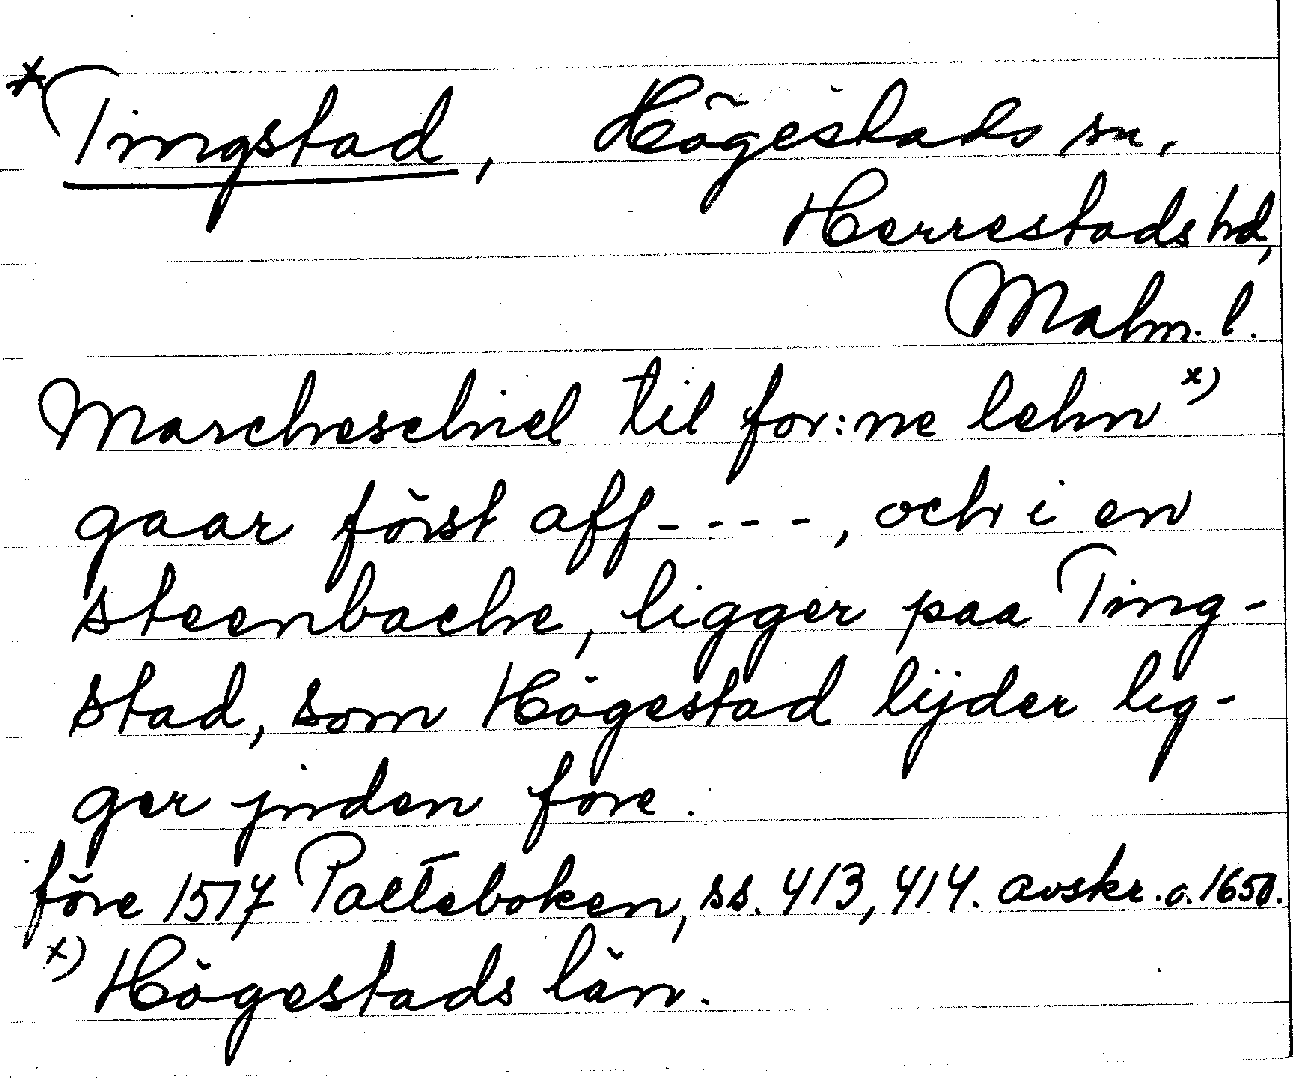 *Tingstad, Högestads sn,
Herrestads hd,
Malm. l.
Marcheschiel til for:ne lehn x)
gaar först aff - - - -, och i en
steenbache, ligger paa Ting-
stad, som Högestad lijder lig-
ger jnden fore.
före 1517 Palteboken, ss. 413, 414. avskr. o. 1650.
x) Högestads län.